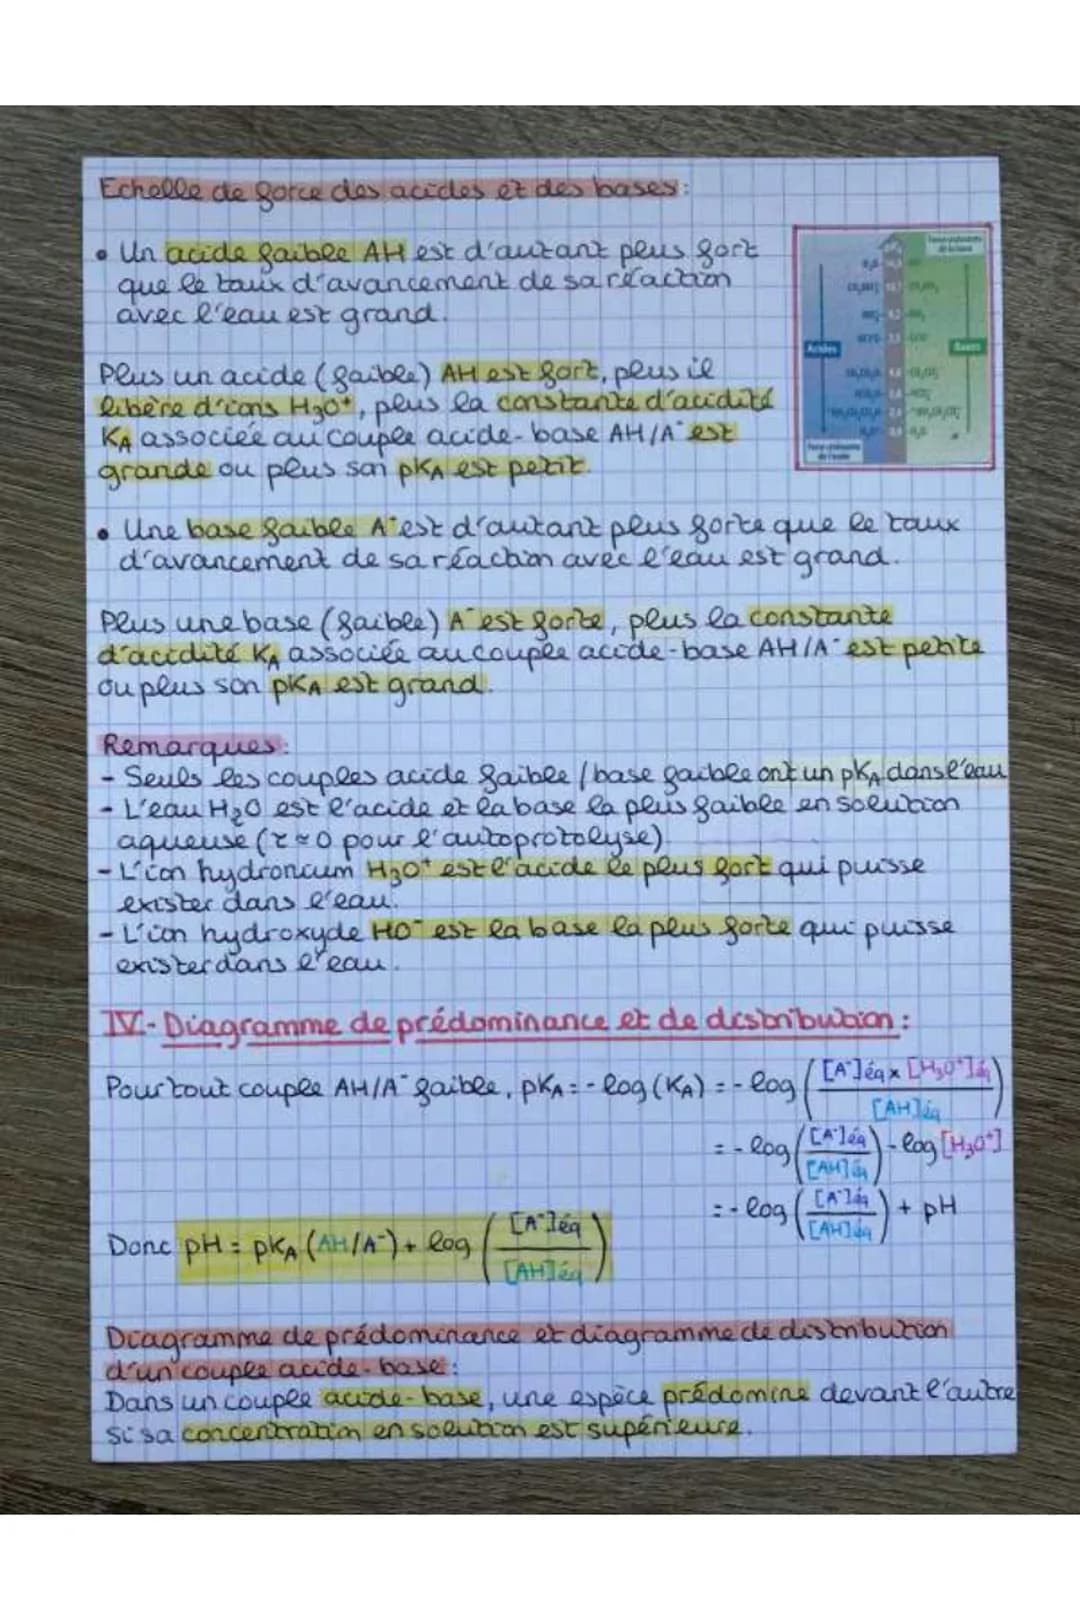 Echelle de force des acides et des bases:
• Un acide faible AH est d'autant plus fort
que le taux d'avancement de sa réaction
avec l'eau est grand.
Acides
Bases
Plus un acide (faible) AH est fort, plus il
libère d'ions H₃O⁺, plus la constante d'acidité
KA associée au couple acide-base AH/A⁻ est
grande ou plus son pKA est petit.
• Une base faible A⁻ est d'autant plus forte que le taux
d'avancement de sa réaction avec l'eau est grand.
Plus une base (faible) A⁻ est forte, plus la constante
d'acidité KA associée au couple acide-base AH/A⁻ est petite
ou plus son pKA est grand.
Remarques:
- Seuls les couples acide faible / base faible ont un pKA dans l'eau
- L'eau H₂O est l'acide et la base la plus faible en solution
aqueuse (τ ≈ 0 pour l'autoprotolyse)
- L'ion hydronium H₃O⁺ est l'acide le plus fort qui puisse
exister dans l'eau.
- L'ion hydroxyde HO⁻ est la base la plus forte qui puisse
exister dans l'eau.
IV - Diagramme de prédominance et de distribution:
Pour tout couple AH/A⁻ faible, pKA = - log (KA) = - log ([A⁻]éq x [H₃O⁺]éq / [AH]éq)
= - log ([A⁻]éq / [AH]éq) - log [H₃O⁺]
= - log ([A⁻]éq / [AH]éq) + pH
Donc pH = pKA (AH/A⁻) + log ([A⁻]éq / [AH]éq)
Diagramme de prédominance et diagramme de distribution
d'un couple acide-base:
Dans un couple acide-base, une espèce prédomine devant l'autre
si sa concentration en solution est supérieure.